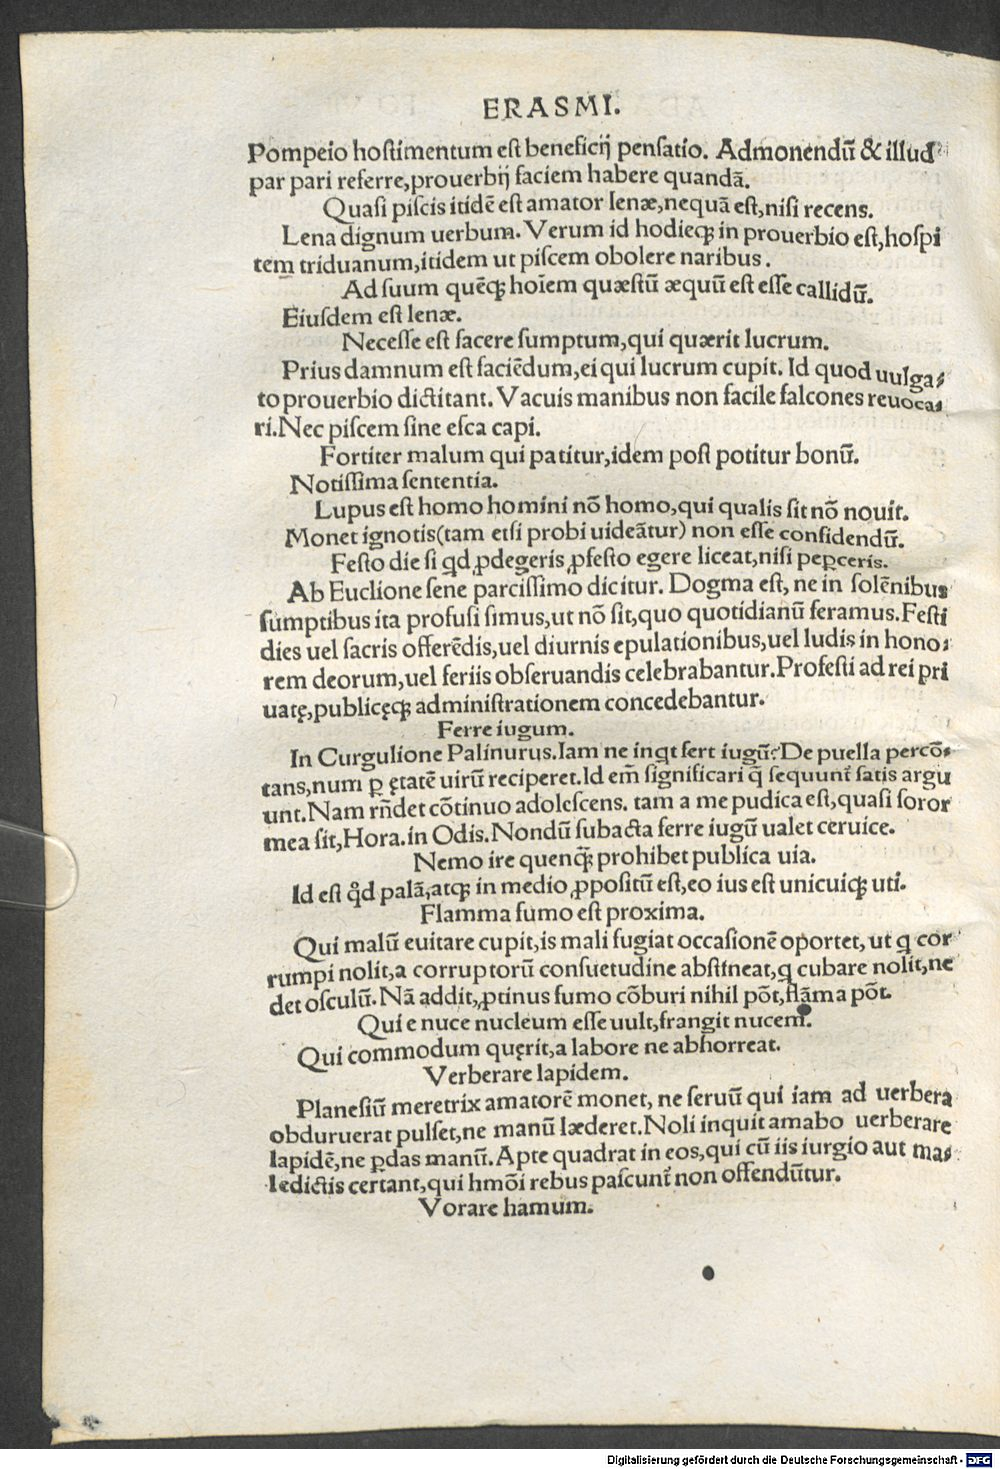 ERASMI.
Pompeio hostimentum est beneficij pensatio. Admonendū & illud
par pari referre,prouerbij faciem habere quandā.
Quasi piscis itidē est amator lenæ,nequā est,nisi recens.
Lena dignum uerbum. Verum id hodieqꝫ in prouerbio est,hospi
tem triduanum,itidem ut piscem obolere naribus.
Ad suum quēqꝫ hoīem quæstū æquū est esse callidū.
Eiusdem est lenæ.
Necesse est facere sumptum,qui quærit lucrum.
Prius damnum est faciēdum,ei qui lucrum cupit. Id quod uulga⸗
to prouerbio dictitant. Vacuis manibus non facile falcones reuoca⸗
ri.Nec piscem sine esca capi.
Fortiter malum qui patitur,idem post potitur bonū.
Notissima sententia.
Lupus est homo homini nō homo,qui qualis sit nō nouit.
Monet ignotis(tam etsi probi uideātur) non esse confidendū.
Festo die si qd ꝓdegeris ꝓfesto egere liceat,nisi peꝑceris.
Ab Euclione sene parcissimo dicitur. Dogma est, ne in solēnibus
sumptibus ita profusi simus,ut nō sit,quo quotidianū feramus.Festi
dies uel sacris offerēdis,uel diurnis epulationibus,uel ludis in hono⸗
rem deorum,uel feriis obseruandis celebrabantur.Profesti ad rei pri
uatę,publicęqꝫ administrationem concedebantur.
Ferre iugum.
In Curgulione Palinurus.Iam ne inqt fert iugū?De puella percō⸗
tans,num ꝑ ętatē uirū reciperet.Id em̄ significari q̄ sequunt᷑ satis argu
unt.Nam rn̄det cōtinuo adolescens. tam a me pudica est,quasi soror
mea sit,Hora.in Odis.Nondū subacta ferre iugū ualet ceruice.
Nemo ire quenq̄ꝫ prohibet publica uia.
Id est qd̄ palā,atqꝫ in medio ꝓpositū est,eo ius est unicuiqꝫ uti.
Flamma fumo est proxima.
Qui malū euitare cupit,is mali fugiat occasionē oportet, ut q cor
rumpi nolit,a corruptorū consuetudine abstineat,q cubare nolit,ne
det osculū. Nā addit,ꝓtinus fumo cōburi nihil pōt,flāma pōt.
Qui e nuce nucleum esse uult,frangit nucem.
Qui commodum quęrit,a labore ne abhorreat.
Verberare lapidem.
Planesiū meretrix amatorē monet, ne seruū qui iam ad uerbera
obduruerat pulset,ne manū læderet.Noli inquit amabo uerberare
lapidē,ne ꝑdas manū.Apte quadrat in eos,qui cū iis iurgio aut ma⸗
ledictis certant,qui hmōi rebus pascunt᷑ non offendūtur.
Vorare hamum.
Digitalisierung gefördert durch die Deutsche Forschungsgemeinschaft - DFG